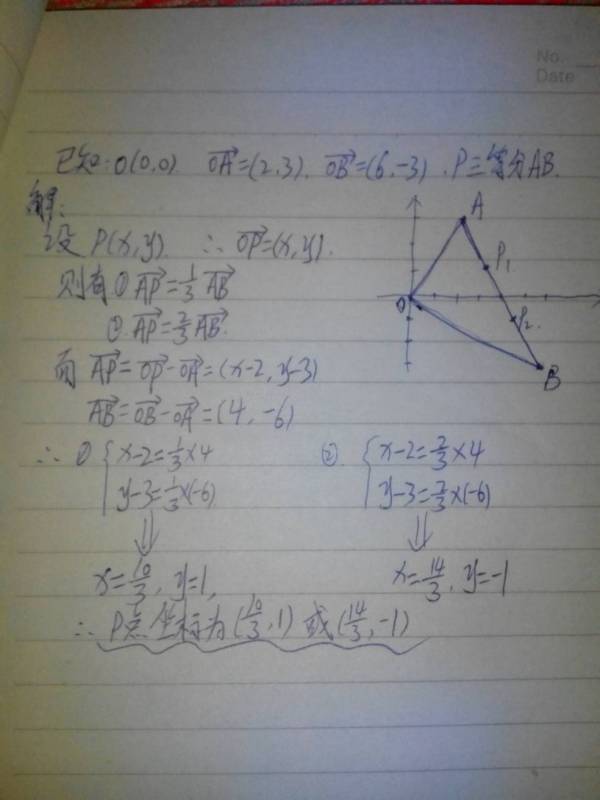 No.
Date
已知:O(0,0) OA→=(2,3), OB→=(6,-3), P三等分AB.
解:
设P(x,y) ∴OP→=(x,y).
则有①AP→=1/3AB→
②.AP→=2/3AB→.
而AP→=OP→-OA→=(x-2,y-3)
AB→=OB→-OA→=(4,-6)
∴① { x-2=1/3×4 ② { x-2=2/3×4
y-3=1/3×(-6) y-3=2/3×(-6)
⇓ ⇓
x=10/3, y=1, x=14/3, y=-1
∴P点坐标为(10/3,1)或(14/3,-1)
A
P1
O
P2
B